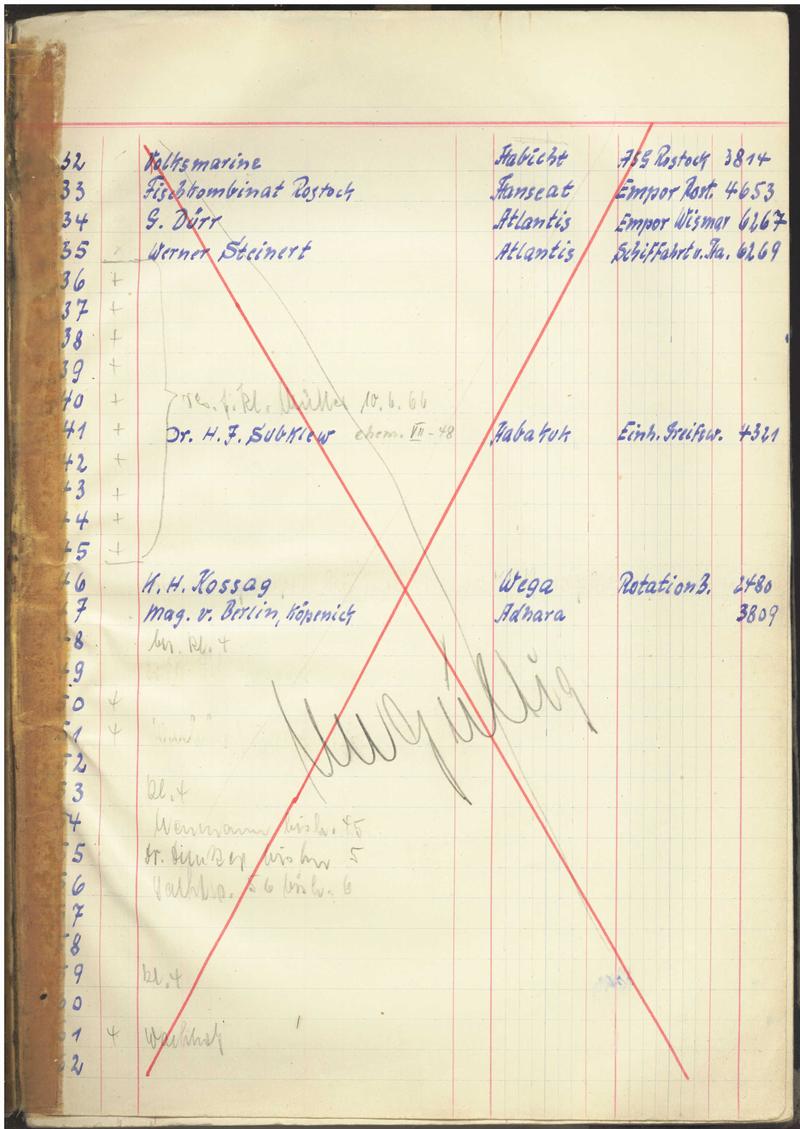 32 Volksmarine Habicht ASG Rostock 3814
33 Fischkombinat Rostock Hanseat Empor Rost. 4653
34 G. Dürr Atlantis Empor Wismar 6267
35 x Werner Steinert Atlantis Schiffahrt u. Ha. 6269
36 +
37 +
38 +
39 +
40 + res. f. kl. Müller 10.6.66
41 + Dr. H. F. Subklew ehem. VII-48 Habakuk Einh. Greifsw. 4321
42 +
43 +
44 +
45 +
6 K. H. Kossag Wega Rotation B. 2480
7 Mag. v. Berlin, Köpenick Adhara 3809
8 kl. 4
9
0 +
1 +
2
Ungültig
3 kl. 4
4 bish. 45
5 Dr. bisher 5
6 56 bish. 6
7
8
9 kl. 4
0
1 +
2